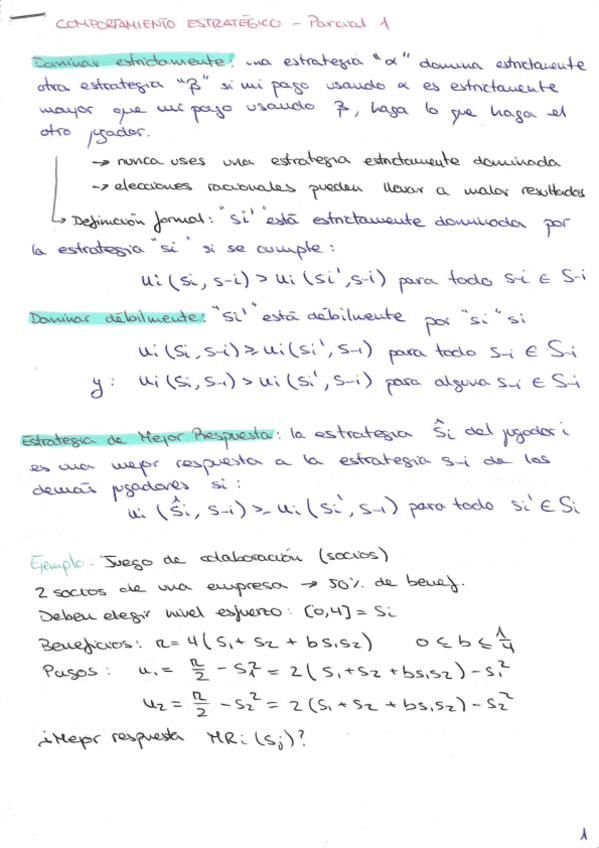 COMPORTAMIENTO ESTRATÉGICO - Parcial 1
Dominar estrictamente: una estrategia "α" domina estrictamente
otra estrategia "β" si mi pago usando α es estrictamente
mayor que mi pago usando β, haga lo que haga el
otro jugador.
→ nunca uses una estrategia estrictamente dominada
→ elecciones racionales pueden llevar a malos resultados
↳ Definición formal: "si'" está estrictamente dominada por
la estrategia "si" si se cumple:
ui (si, s-i) > ui (si', s-i) para todo s-i ∈ S-i
Dominar débilmente: "si'" está débilmente por "si" si
ui (si, s-i) ≥ ui (si', s-i) para todo s-i ∈ S-i
y: ui (si, s-i) > ui (si', s-i) para alguna s-i ∈ S-i
Estrategia de Mejor Respuesta: la estrategia ŝi del jugador i
es una mejor respuesta a la estrategia s-i de los
demás jugadores si:
ui (ŝi, s-i) ≥ ui (si', s-i) para todo si' ∈ Si
Ejemplo: Juego de colaboración (socios)
2 socios de una empresa → 50% de benef.
Deben elegir nivel esfuerzo: [0,4] = Si
Beneficios: r = 4 (s1 + s2 + bs1s2) 0 ≤ b ≤ 1/4
Pagos: u1 = r/2 - s1² = 2 (s1 + s2 + bs1s2) - s1²
u2 = r/2 - s2² = 2 (s1 + s2 + bs1s2) - s2²
¿Mejor respuesta MRi (sj)?
1